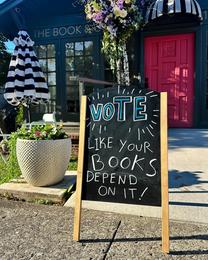 THE BOOK &
VOTE
LIKE YOUR
BOOKS
DEPEND
ON IT!